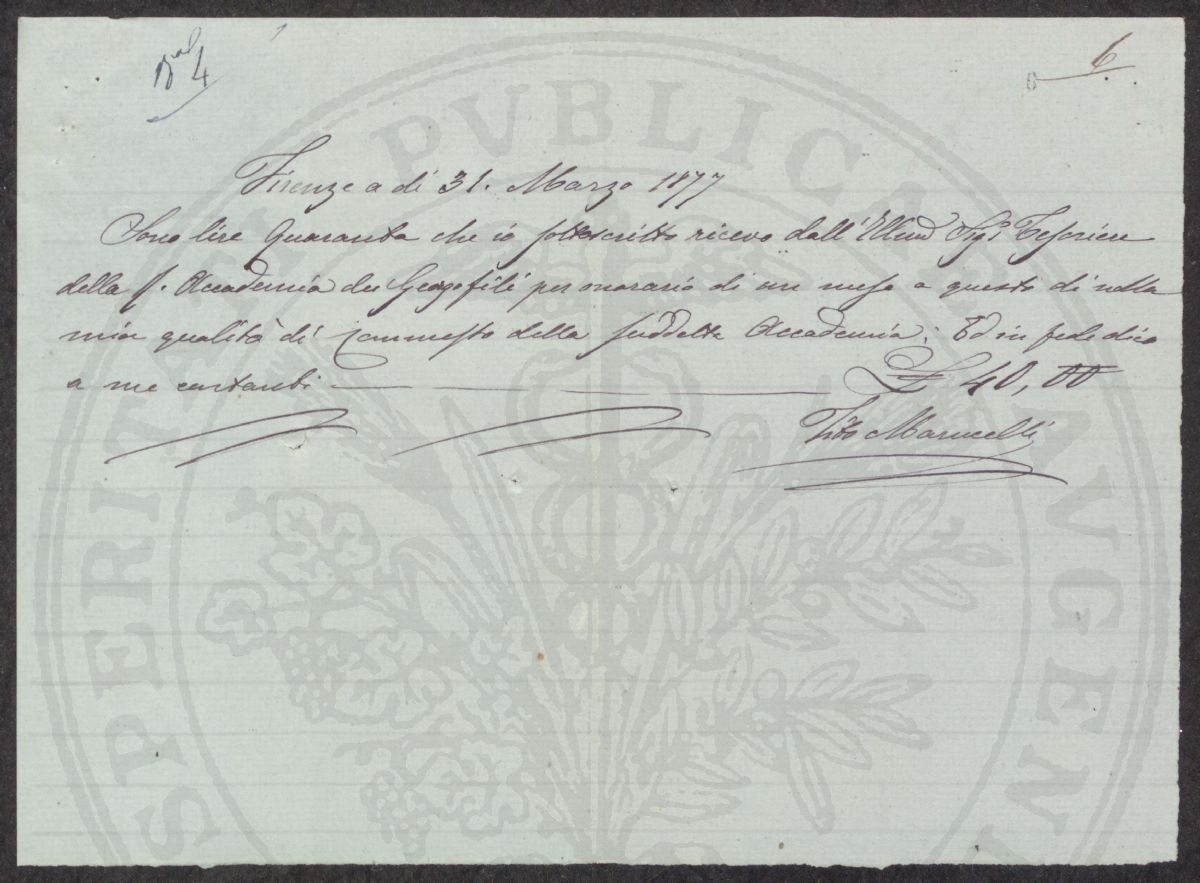 N° 4
6
6
Firenze a di 31. Marzo 1877
Sono lire Quaranta che io sottoscritto ricevo dall' Sig. Tesoriere
della R. Accademia dei Georgofili per onorario di un mese a questo di nella
mia qualità di Commesso della suddetta Accademia: Ed in fede dico
a me contanti £ 40,00
Tito Marucelli
PROSPERITATI PVBLICAE AVGENDAE